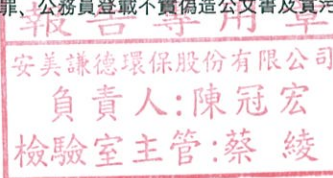 罪、公務員登載不實偽造公文書及貪污
報告專用章
安美謙德環保股份有限公司
負責人:陳冠宏
檢驗室主管:蔡綾